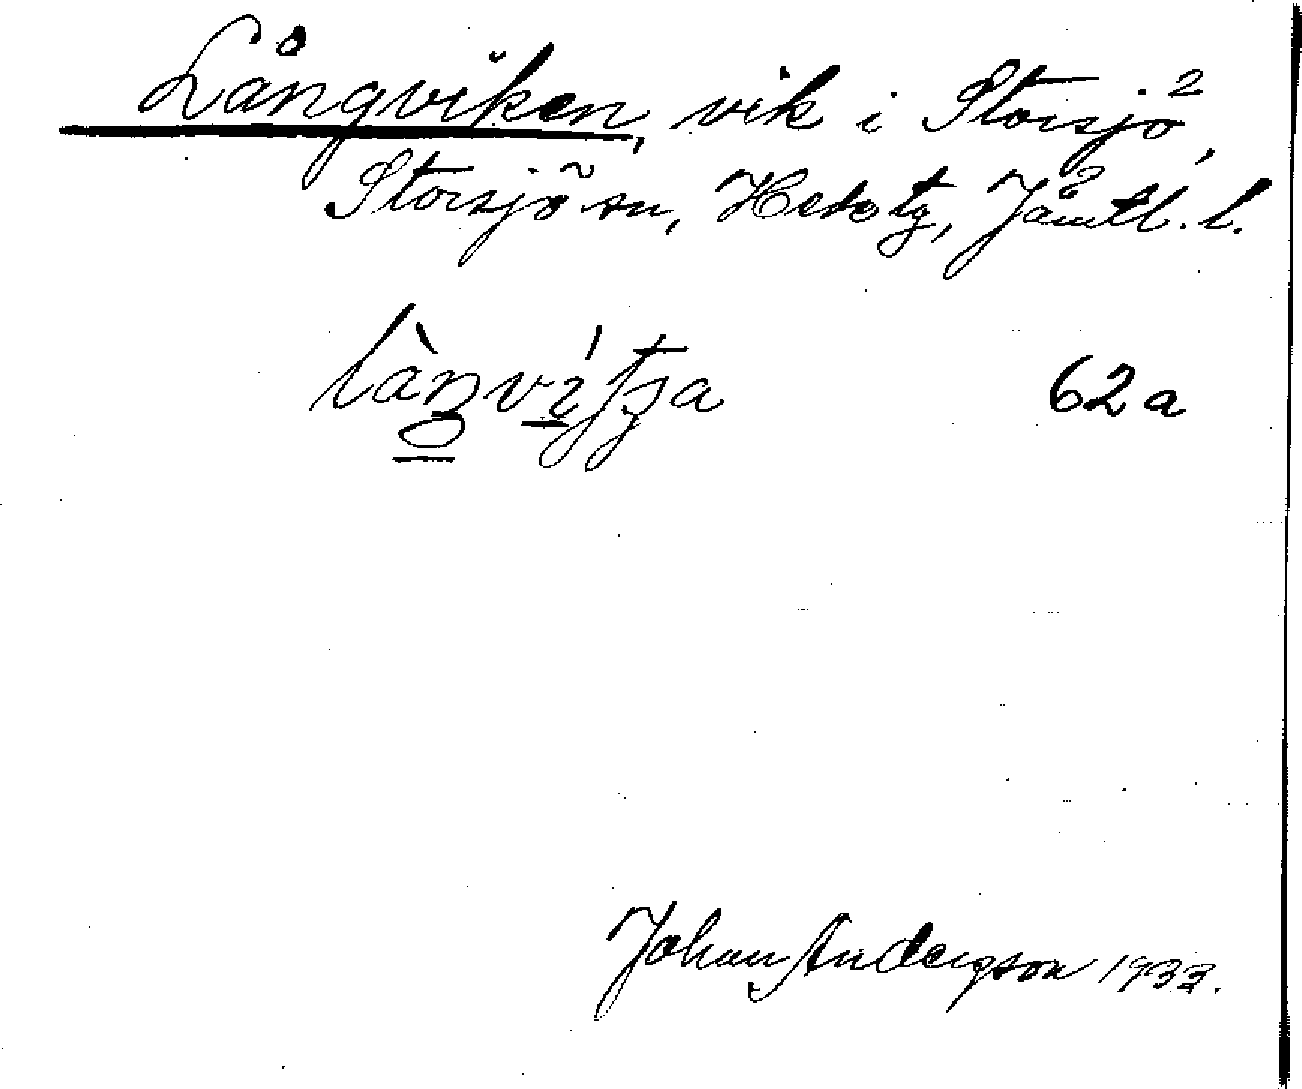 Långviken, vik i Storsjö,
Storsjö sn, Hede tg, Jämtl. l.
62a
Johan Anderson 1933.